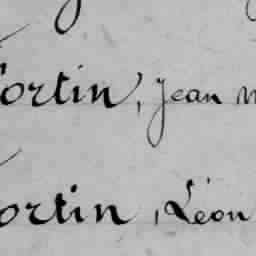 Fortin, Jean
Fortin, Léon